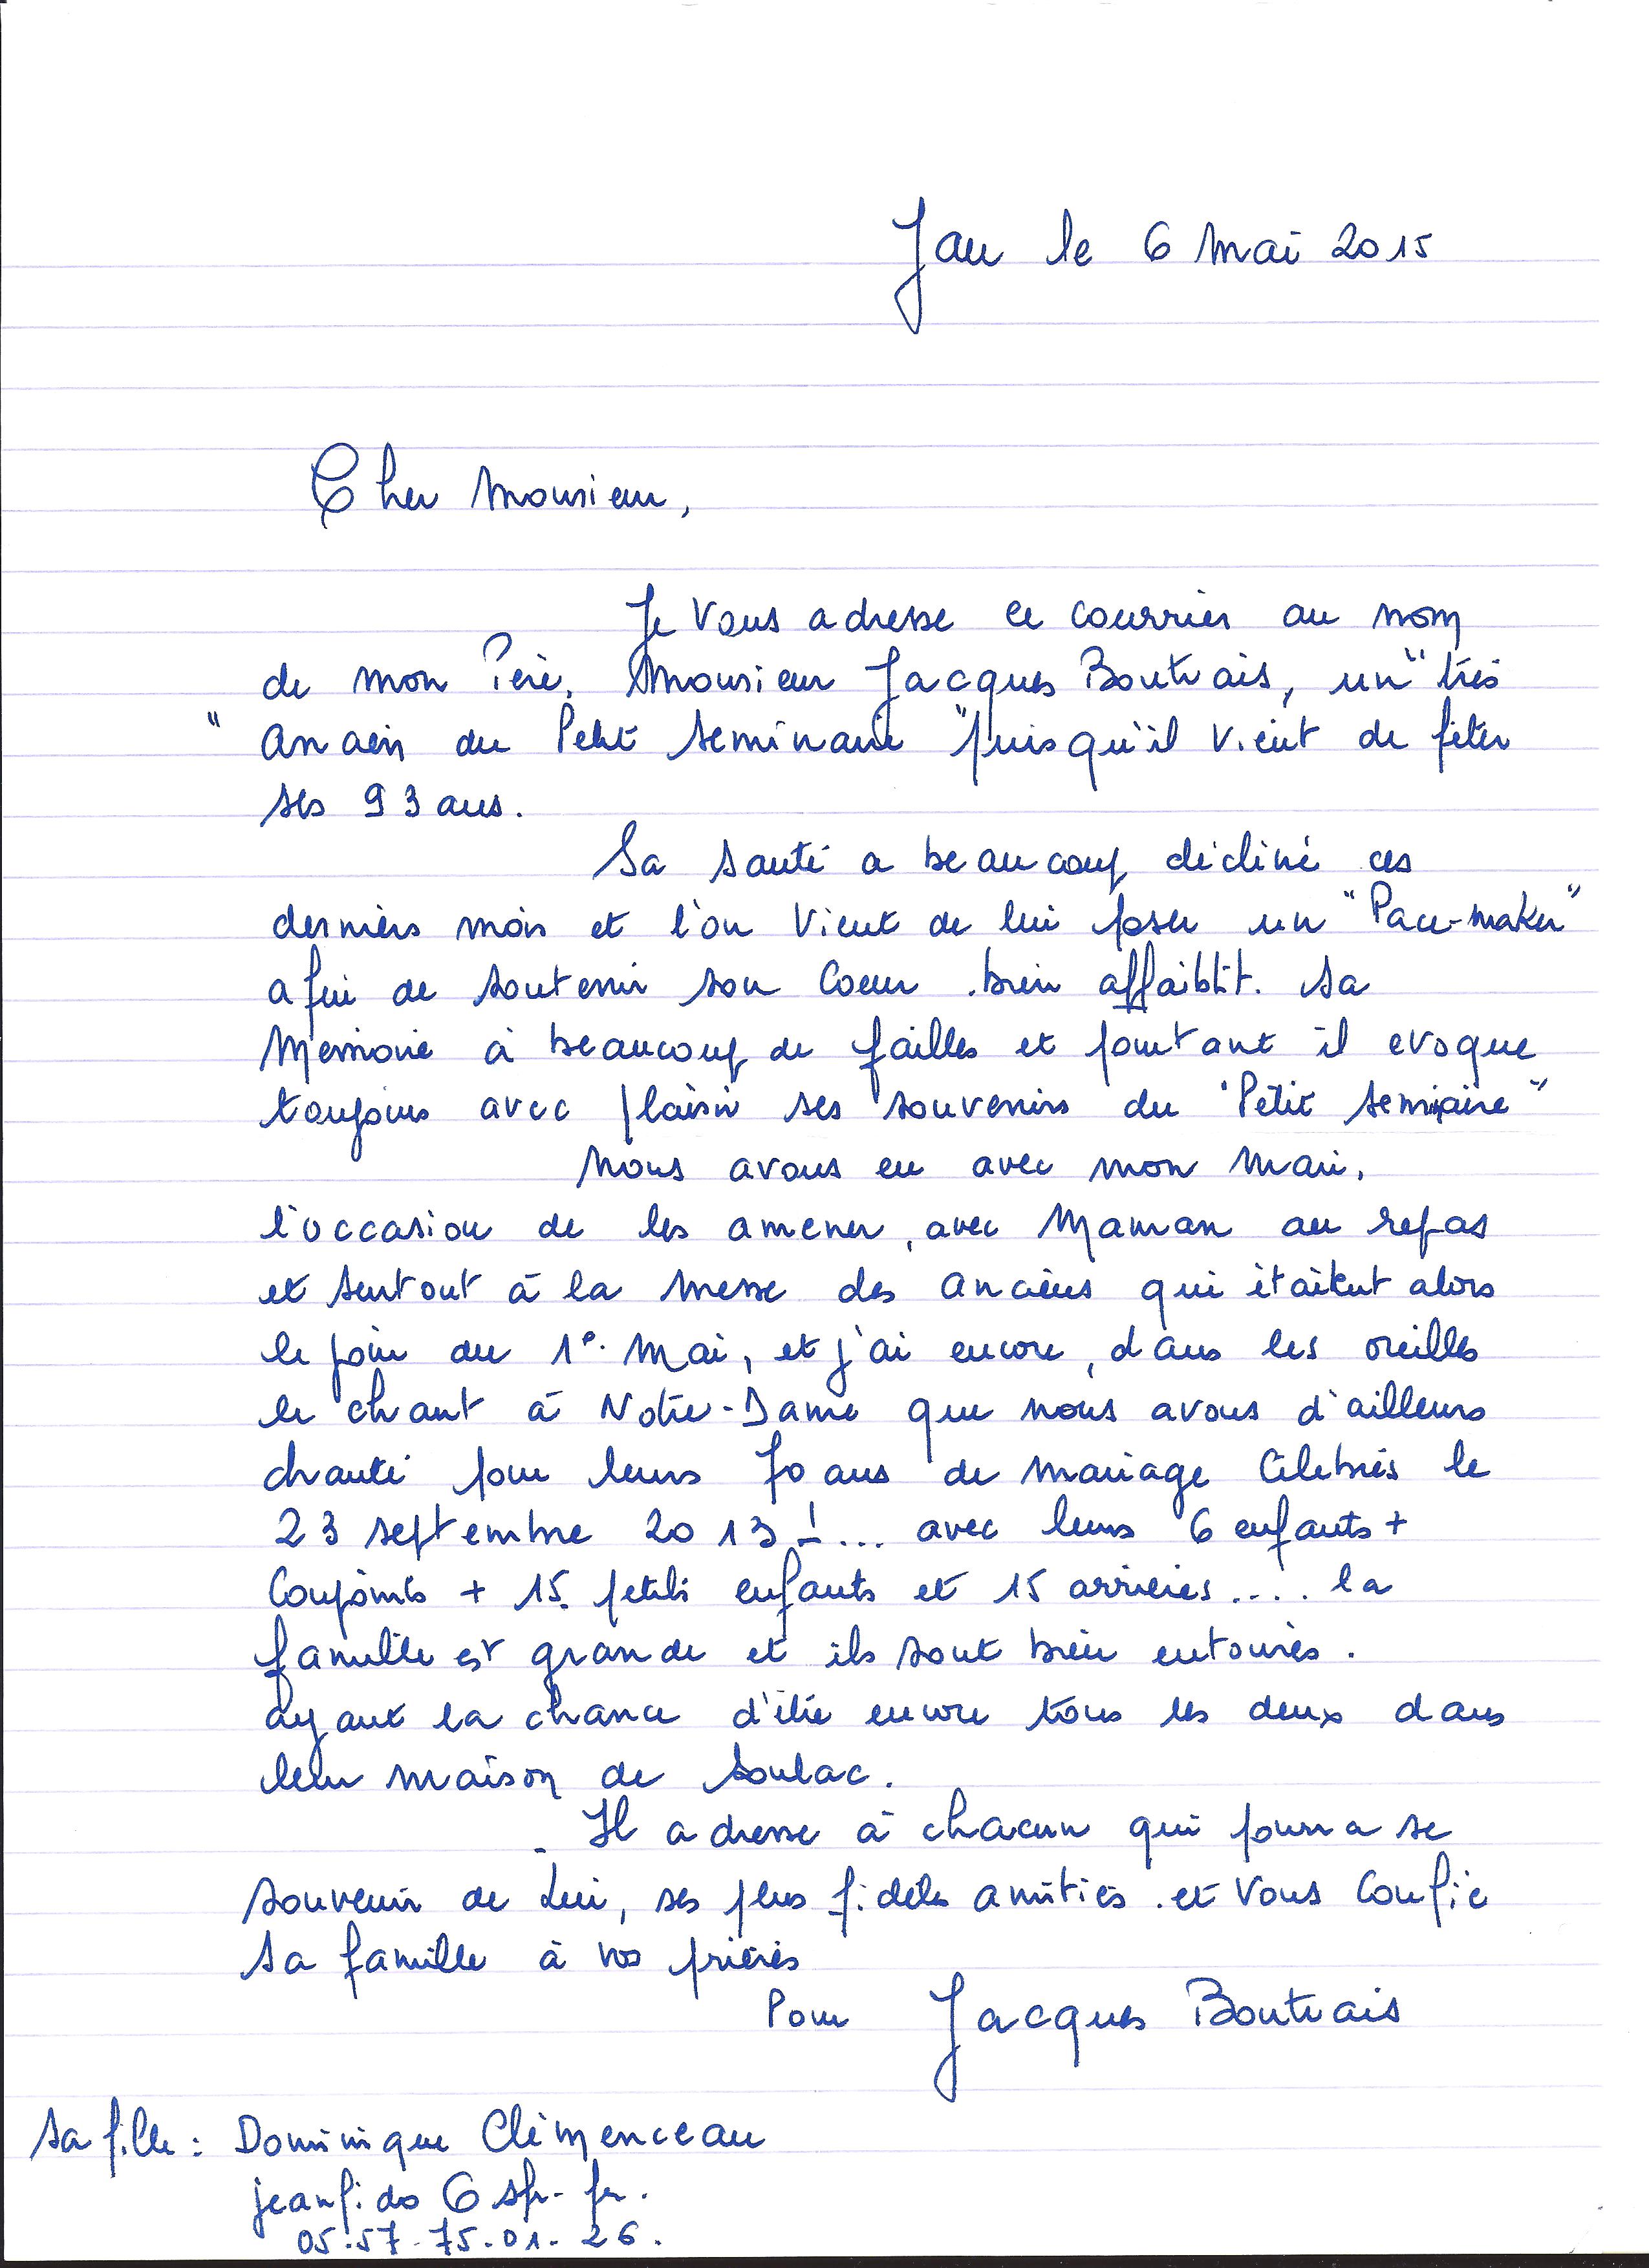 Jau le 6 Mai 2015
Cher Monsieur,
Je Vous adresse ce courrier au nom
de mon Père, Monsieur Jacques Boutrais, un "très
" ancien du Petit Seminaire " puisqu'il vient de fêter
ses 93 ans.
Sa santé a beaucoup décliné ces
derniers mois et l'on vient de lui poser un "Pace-maker"
afin de soutenir son Coeur bien affaiblit. Sa
Mémoire à beaucoup de failles et pourtant il evoque
toujours avec plaisir ses souvenirs du "Petit Seminaire"
Nous avons eu avec mon Mari,
l'occasion de les amener, avec Maman au repas
et surtout à la Messe des anciens qui étaient alors
le jour du 1e. Mai, et j'ai encore, dans les oreilles
le chant à Notre-Dame que nous avons d'ailleurs
chanté pour leurs 70 ans de mariage Célébrés le
23 septembre 2013 !... avec leurs 6 enfants +
Conjoints + 15 petits enfants et 15 arrières.... la
famille est grande et ils sont bien entourés.
ayant la chance d'être encore tous les deux dans
leur maison de Soulac.
Il adresse à chacun qui pourra se
souvenir de Lui, ses plus fidèles amitiés et Vous Confie
Sa famille à vos prières
Pour Jacques Boutrais
Sa fille : Dominique Clémenceau
05.57.75.01.26.